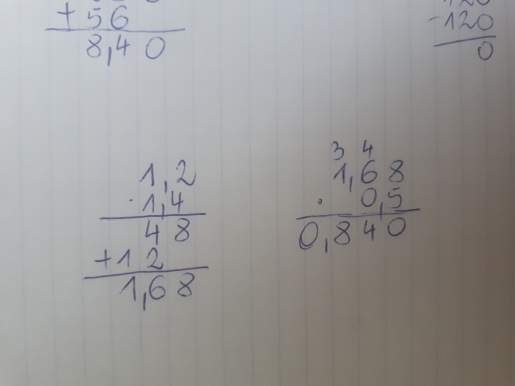 +56
8,40
120
-120
0
1,2
· 1,4
48
+12
1,68
3 4
1,68
· 0,5
0,840